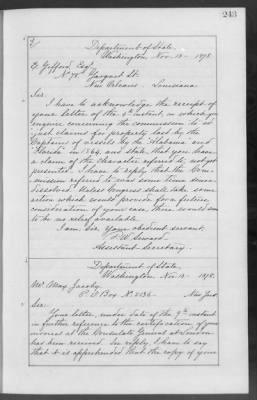 243
Department of State,
Washington, Nov. 13 - 1878.
E. Gifford, Esq.
New Orleans - Louisiana
Sir:
I have to acknowledge the receipt of
your letter of the 6th instant, in which you
enquire concerning the commission to ad-
just claims for property lost by the
capture of vessels by the "Alabama" and
"Florida" in 1864, and state that you have
a claim of the character referred to, not yet
presented. I have to reply that the Com-
mission referred to was some time since
dissolved. Unless Congress shall take some
action which would provide for a further
consideration of your case, there would seem
to be no relief available.
I am, Sir, Your obedient servant,
F. W. Seward
Assistant Secretary.
Department of State,
Washington, Nov. 13 - 1878.
Mr. Max Jacoby,
P. O. Box No. 2036 - New York
Sir:
Your letter, under date of the 9th instant
in further reference to the certification of your
invoices at the Consulate General at London
has been received. In reply, I have to say
that it is apprehended that the copy of your